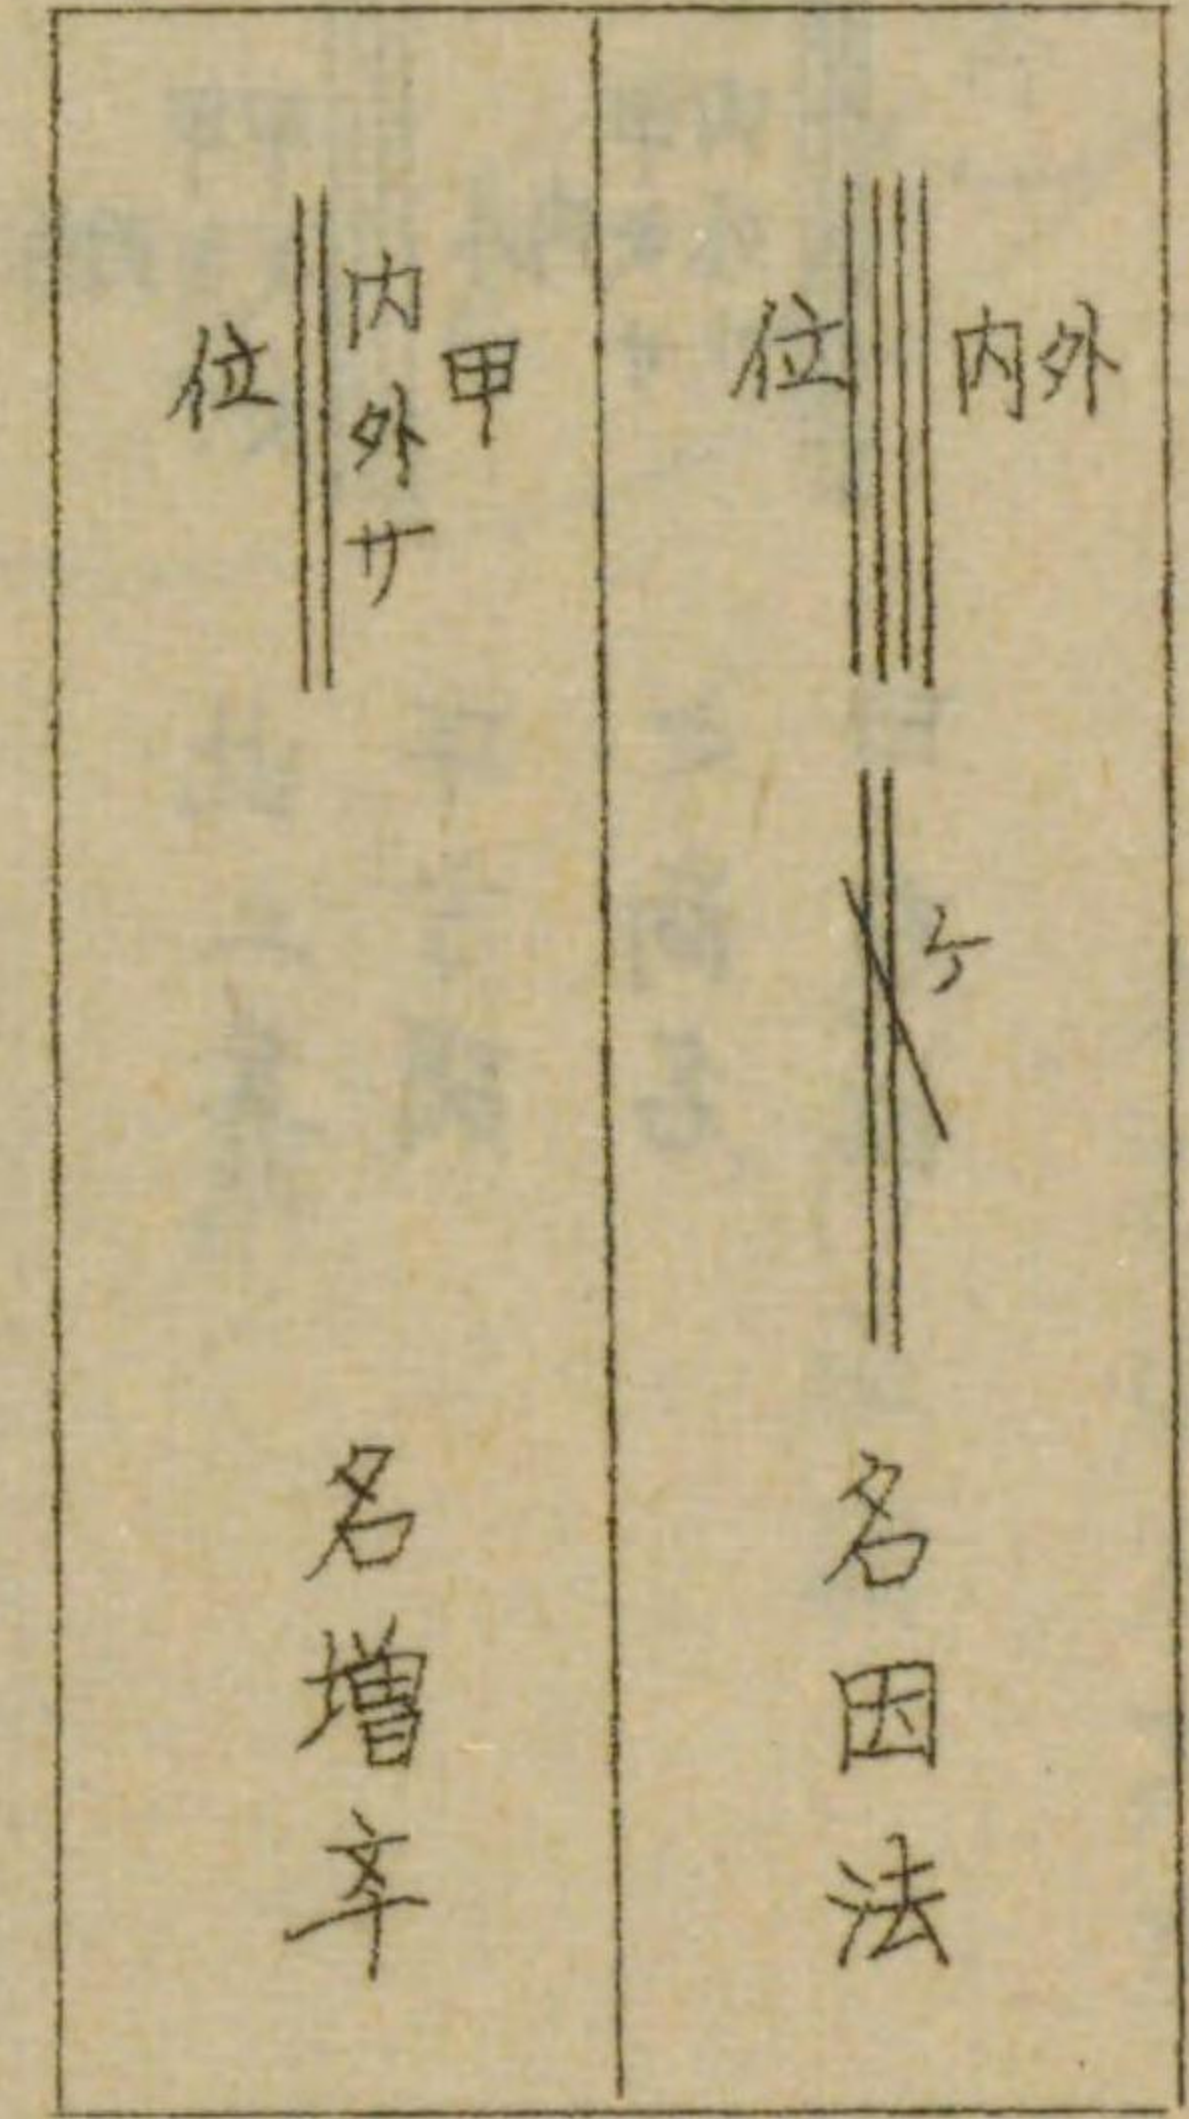 外
内
位
ケ
名因法
甲
内外サ
位
名増卒